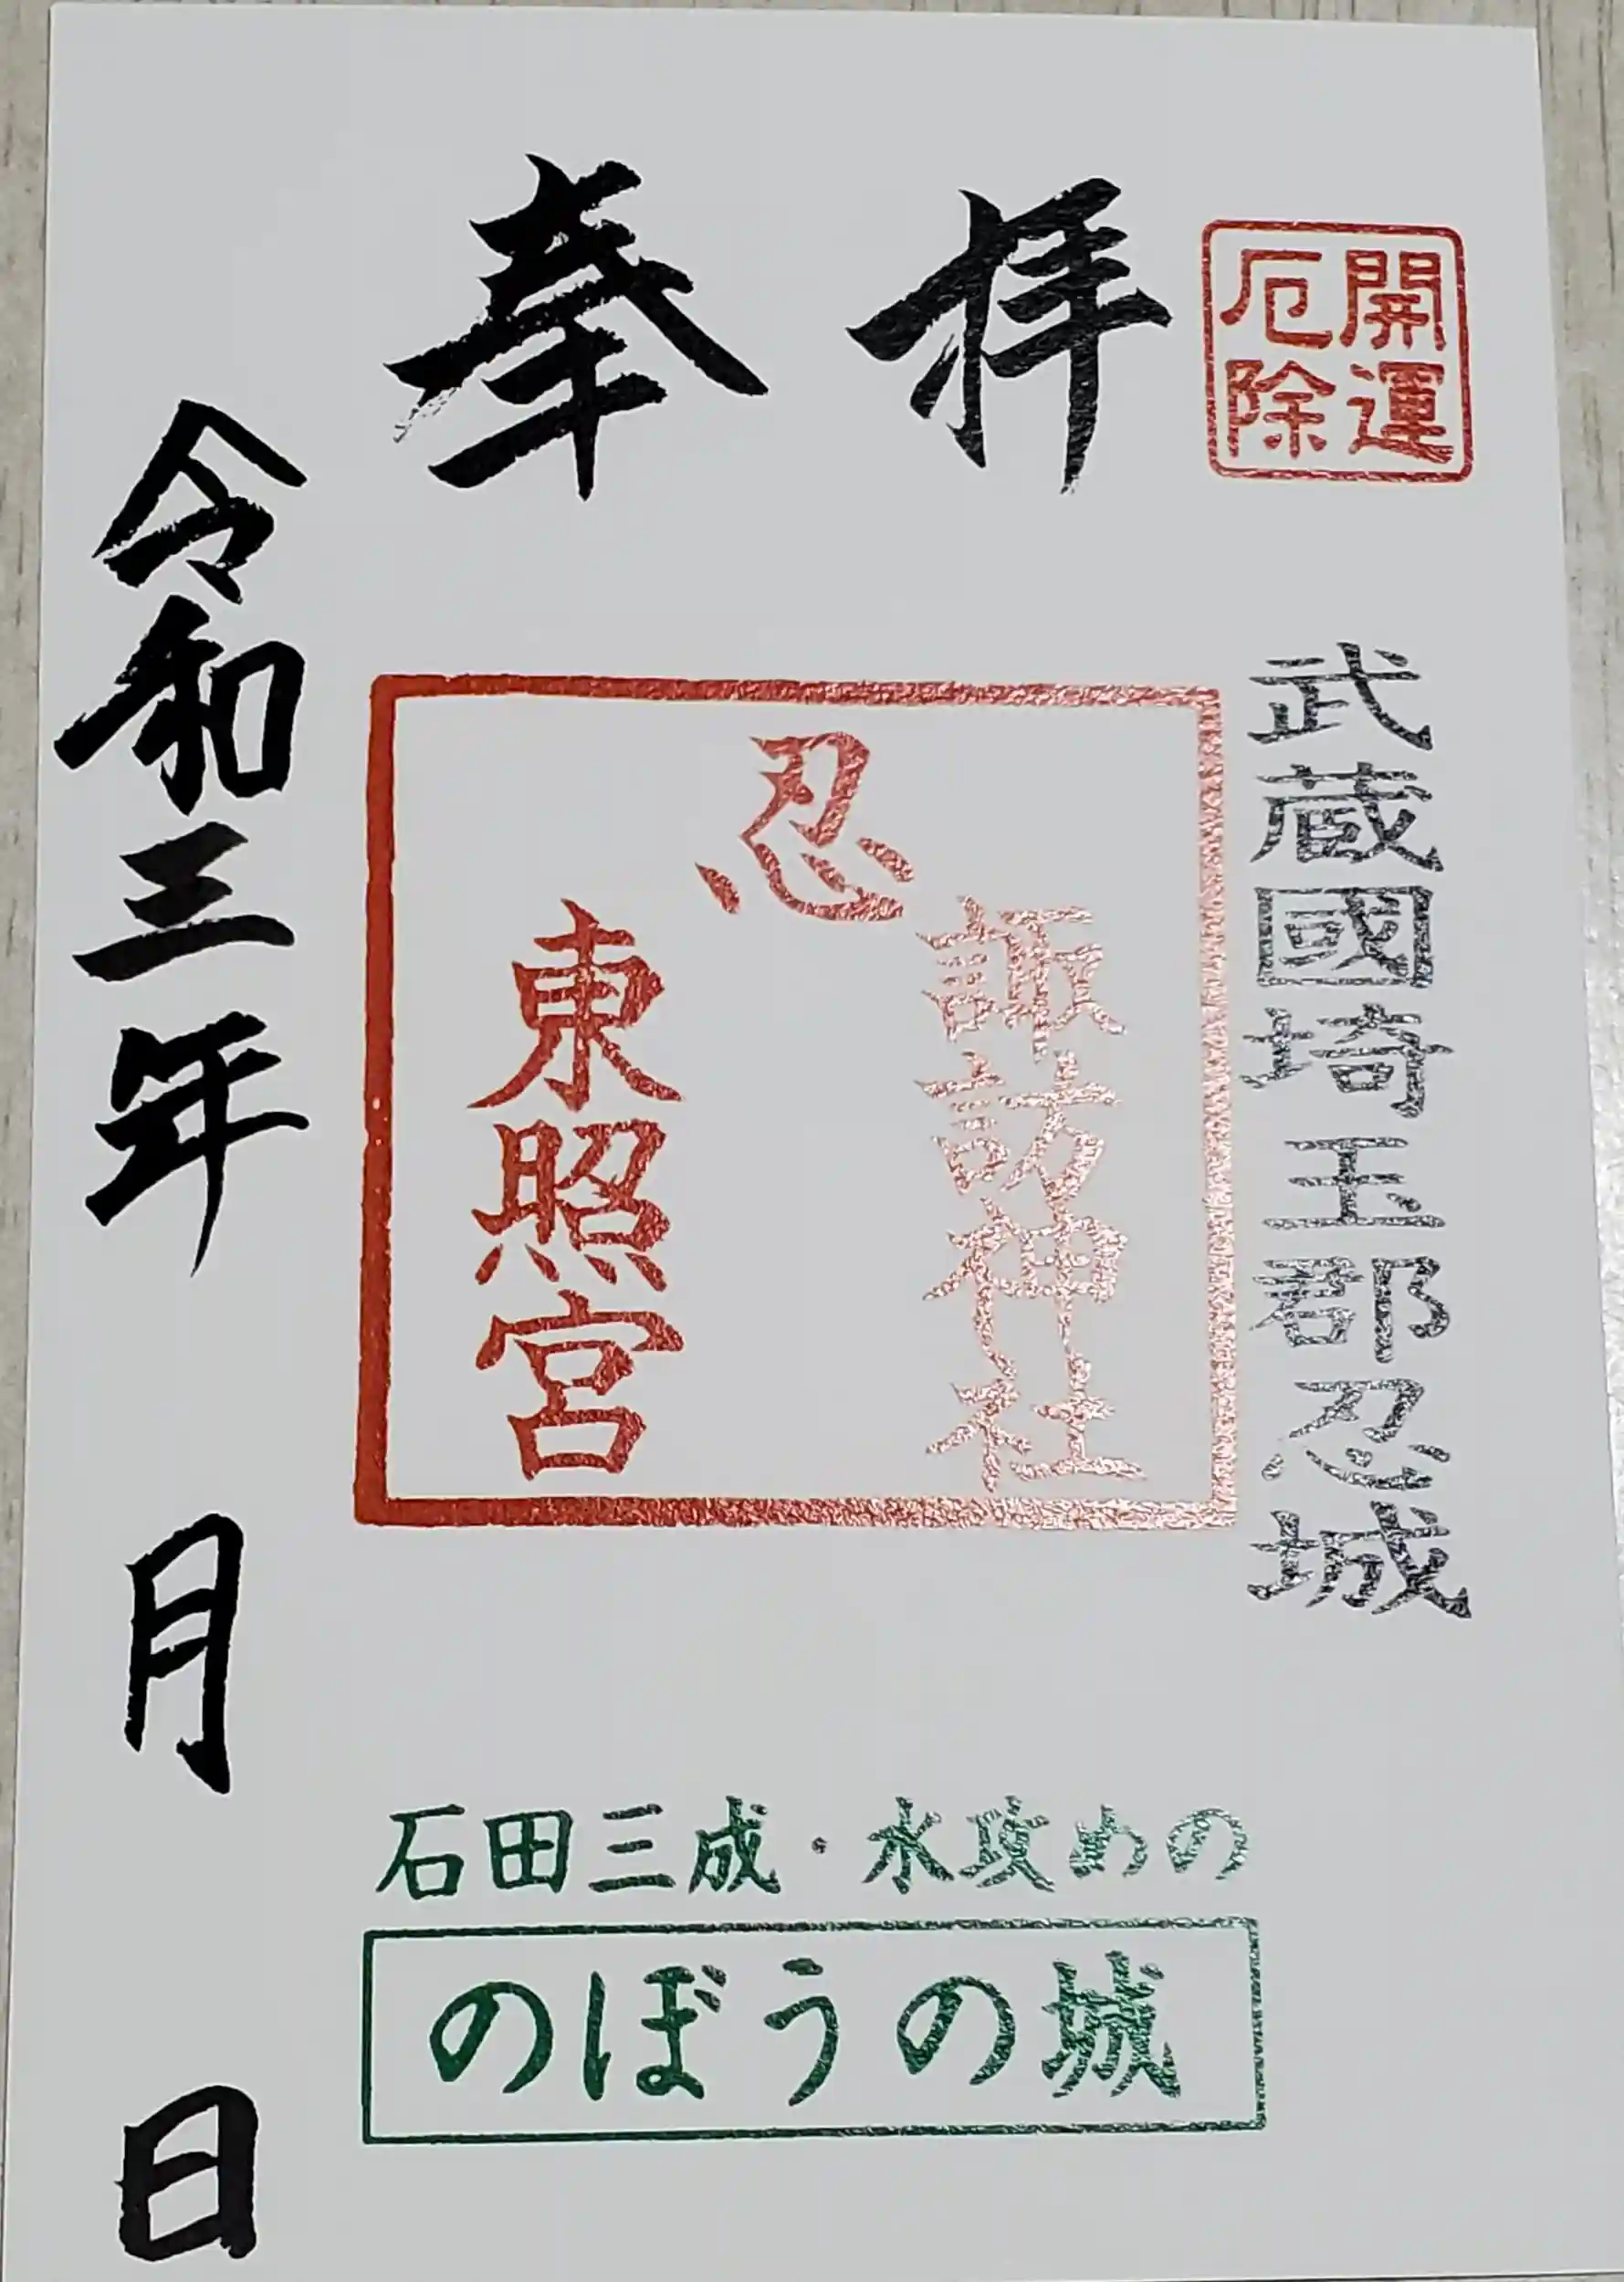 開運
厄除
奉拝
武蔵國埼玉郡忍城
忍
諏訪神社
東照宮
令和三年 月 日
石田三成・水攻めの
のぼうの城